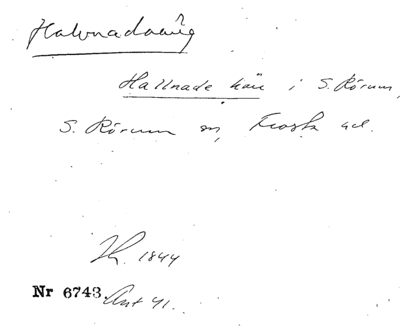 Hallnade kär i S. Rörum,
S. Rörum sn, Frosta hd.
1844
Nr 6743 Ant 41.